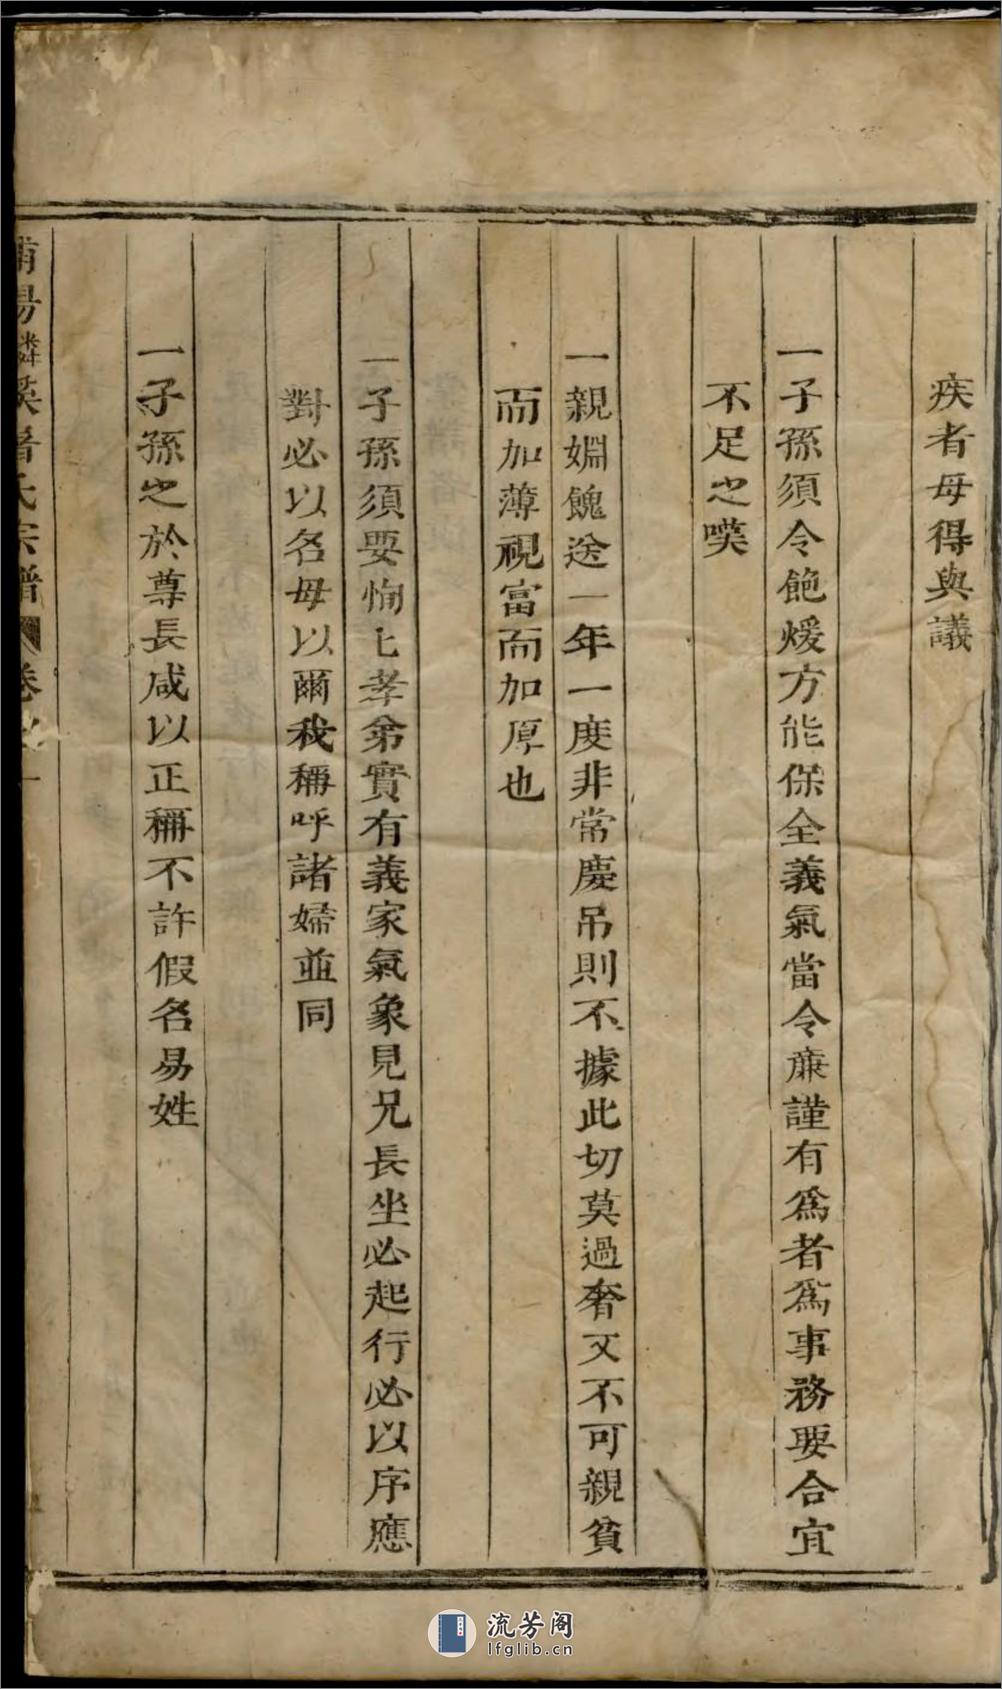 疾者毋得與議
一子孫須令飽煖方能保全義氣當令亷謹有爲者爲事務要合宜
不足之嘆
一親婣餽送一年一度非常慶吊則不據此切莫過奢又不可親貧
而加薄視富而加厚也
一子孫須要恂匕孝弟實有義家氣象見兄長坐必起行必以序應
對必以名毋以爾我稱呼諸婦並同
一子孫之於尊長咸以正稱不許假名易姓
陽麟溪
氏宗譜
卷之一
流芳阁
lfglib.cn